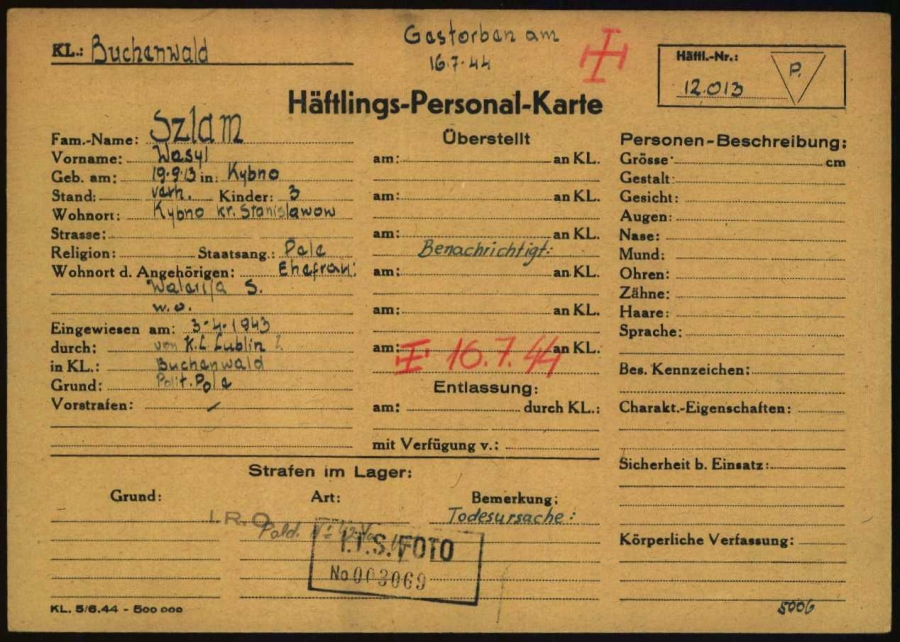 KL.: Buchenwald
Gestorben am
16.7.44
Häftl.-Nr.:
12.013
P.
Häftlings-Personal-Karte
Fam.-Name: Szlam
Vorname: Wasyl
Geb. am: 19.9.13 in: Kybno
Stand: verh. Kinder: 3
Wohnort: Kybno kr. Stanislawow
Strasse:
Religion: Staatsang.: Pole
Wohnort d. Angehörigen: Ehefrau:
S.
w.o.
Eingewiesen am: 3.4.1943
durch: von K.L. Lublin
in KL.: Buchenwald
Grund: Polit. Pole
Vorstrafen:
Überstellt
am: an KL.
am: an KL.
am: an KL.
Benachrichtigt:
am: an KL.
am: an KL.
am: an KL.
16.7.44
Entlassung:
am: durch KL.:
mit Verfügung v.:
Personen-Beschreibung:
Grösse: cm
Gestalt:
Gesicht:
Augen:
Nase:
Mund:
Ohren:
Zähne:
Haare:
Sprache:
Bes. Kennzeichen:
Charakt.-Eigenschaften:
Sicherheit b. Einsatz:
Körperliche Verfassung:
Strafen im Lager:
Grund: Art: Bemerkung:
Todesursache:
I.R.O.
I.T.S./FOTO
No 003069
KL. 5/6.44 - 500 000
5006